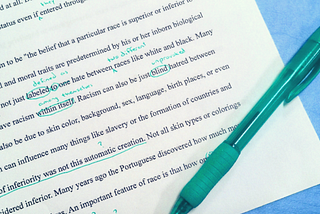 at all. 
stas even if entered through
on to be "the belief that a particular race is superior or inferior to
and moral traits are predetermined by his or her inborn biological
two different
defined as
unprovoked
not just labeled to one hate between races like white and black. Many
among themselves
have racism within itself. Racism can also be just blind hatred between
also be due to skin color, background, sex, language, birth places, or even
n can influence many things like slavery or the formation of countries and
?
of inferiority was not this automatic creation. Not all skin types or colorings
idered inferior. Many years ago the Portuguese discovered how much mo
ngs. An important feature of race is that how